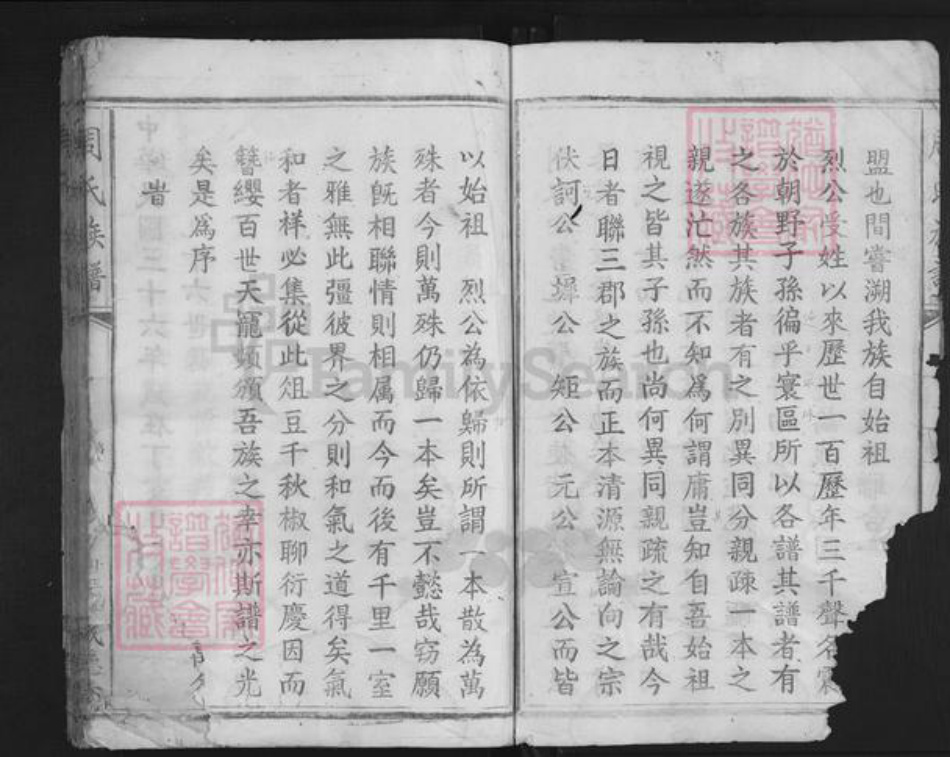 盟也間嘗溯我族自始祖
烈公受姓以來歷世一百歷年三千聲名
於朝野子孫徧乎寰區所以各譜其譜者有
之各族其族者有之別異同分親疎一本之
親遂茫然而不知爲何謂庸豈知自吾始祖
視之皆其子孫也尚何異同親疏之有哉今
日者聯三郡之族而正本清源無論向之宗
伏訶公 墀公 矩公 元公 宣公而皆
以始祖 烈公為依歸則所謂一本散為萬
殊者今則萬殊仍歸一本矣豈不懿哉窃願
族旣相聯情則相属而今而後有千里一室
之雅無此彊彼界之分則和氣之道得矣氣
和者祥必集從此俎豆千秋椒聊衍慶因而
簪纓百世天寵頻頒吾族之幸亦斯譜之光
矣是爲序
旹
周氏族譜
FamilySearch